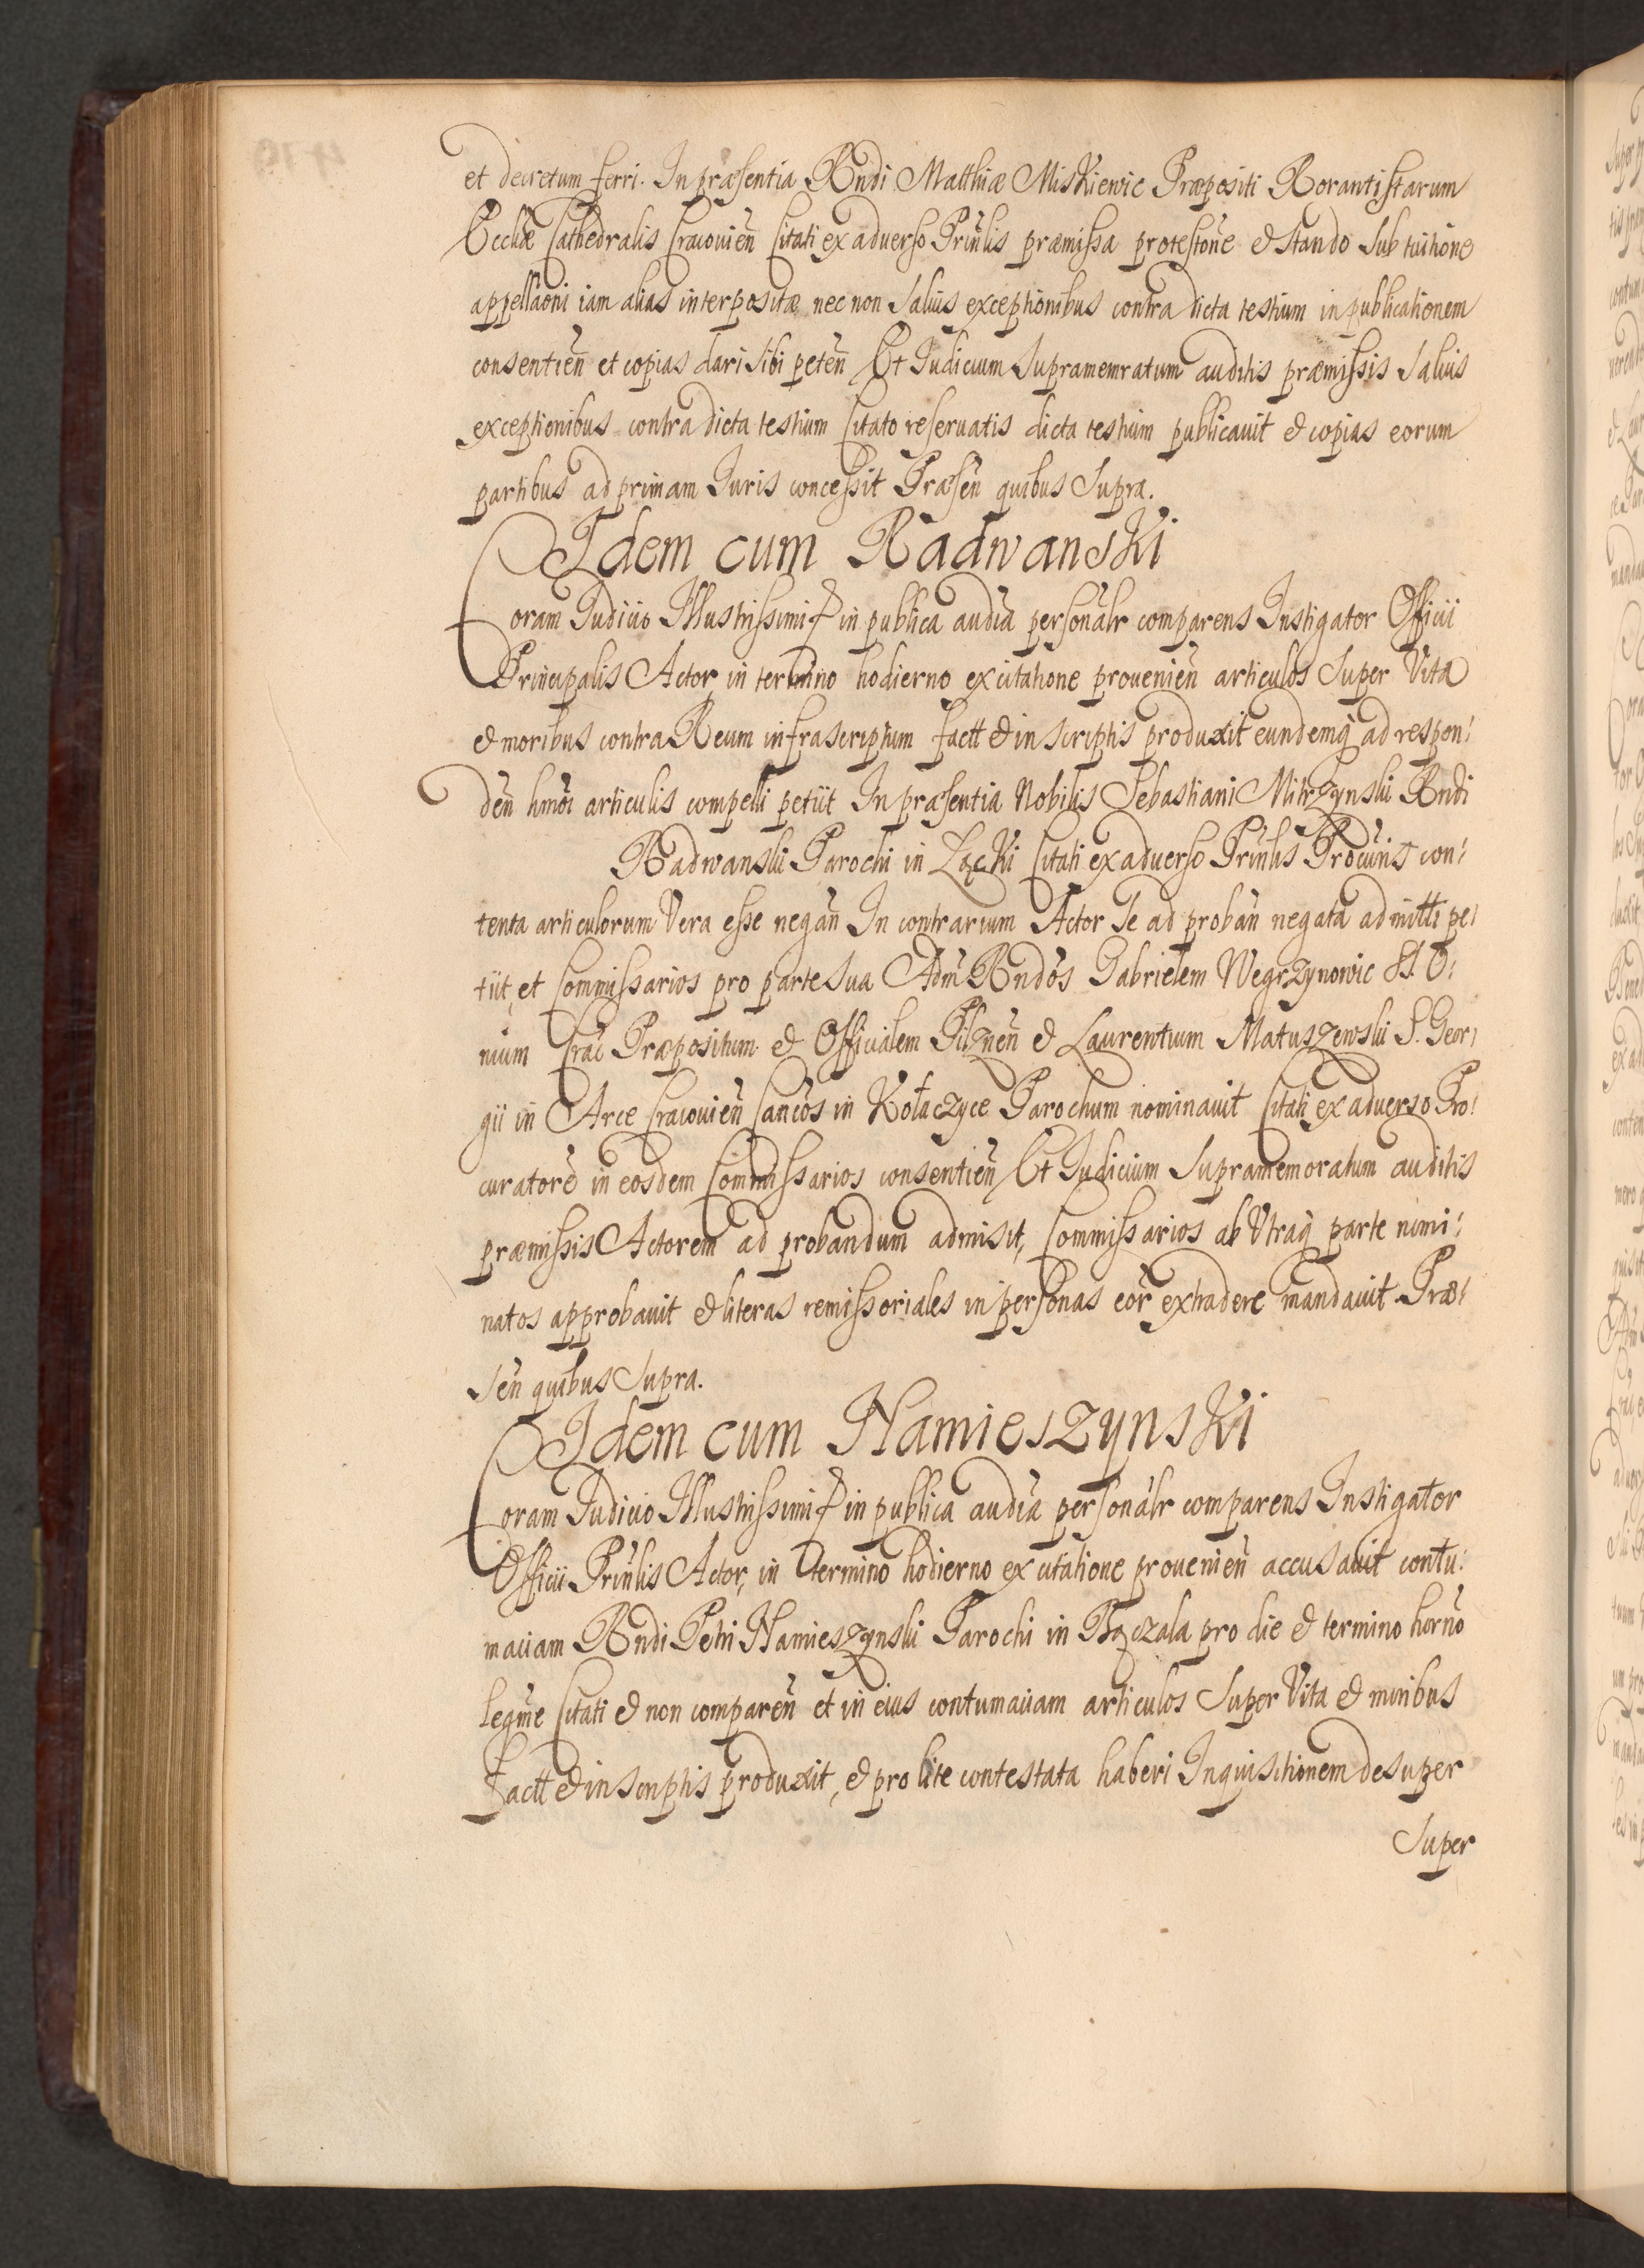 et decretum ferri. In præsentia Rndi Matthiæ Miskiewic Præpositi Rorantistarum
Eccliæ Cathedralis Cracouień Citati ex aduerso Prinlis præmissa protestōne & stando sub tuitione
appellaōni iam alias interpositæ nec non saluis exceptionibus contra dicta testium in publicationem
consentień et copias dari sibi petēn Et Iudicium supramemratum auditis præmissis saluis
exceptionibus contra dicta testium Citato reseruatis dicta testium publicauit & copias eorum
partibus ad primam Iuris concessit Præsēn quibus supra.
Idem cum Radwanski
Coram Iudicio Illustrissimi & in publica audia personalr comparens Instigator Officii
Principalis Actor in termino hodierno ex citatione prouenień articulos super Vita
& moribus contra Reum infrascriptum factt & in scriptis produxit eundemq ad respon:
dēn hmōi articulis compelli petiit In præsentia Nobilis Sebastiani Mitrzynski Rndi
Radwanski Parochi in Łącki Citati ex aduerso Prinlis Procuris con:
tenta articulorum Vera esse negań In contrarium Actor se ad probań negata admitti pe:
tiit, et Commissarios pro parte sua Adm Rndos Gabrielem Wegrzynowic SS. O:
nium Crac Præpositum & Officialem Pilznēn & Laurentium Matuszewski S. Geor:
gii in Arce Cracouień Cancos in Kołaczyce Parochum nominauit Citati ex aduerso Pro:
curatore in eosdem Commissarios consentień Et Iudicium supramemoratum auditis
præmissis Actorem ad probandum admisit, Commissarios ab Vtraq parte nomi:
natos approbauit & literas remissoriales in personas eor extradere mandauit Præ:
sēn quibus supra.
Idem cum Hamieszynski
Coram Iudicio Illustrissimi & in publica audia personalr comparens Instigator
Officii Prinlis Actor, in termino hodierno ex citatione prouenień accusauit contu:
maciam Rndi Petri Hamieszynski Parochi in Bączala pro die & termino horno
legme Citati & non comparēn et in eius contumaciam articulos super Vita & moribus
factt & in scriptis produxit, & pro lite contestata haberi Inquisitionem desuper
super